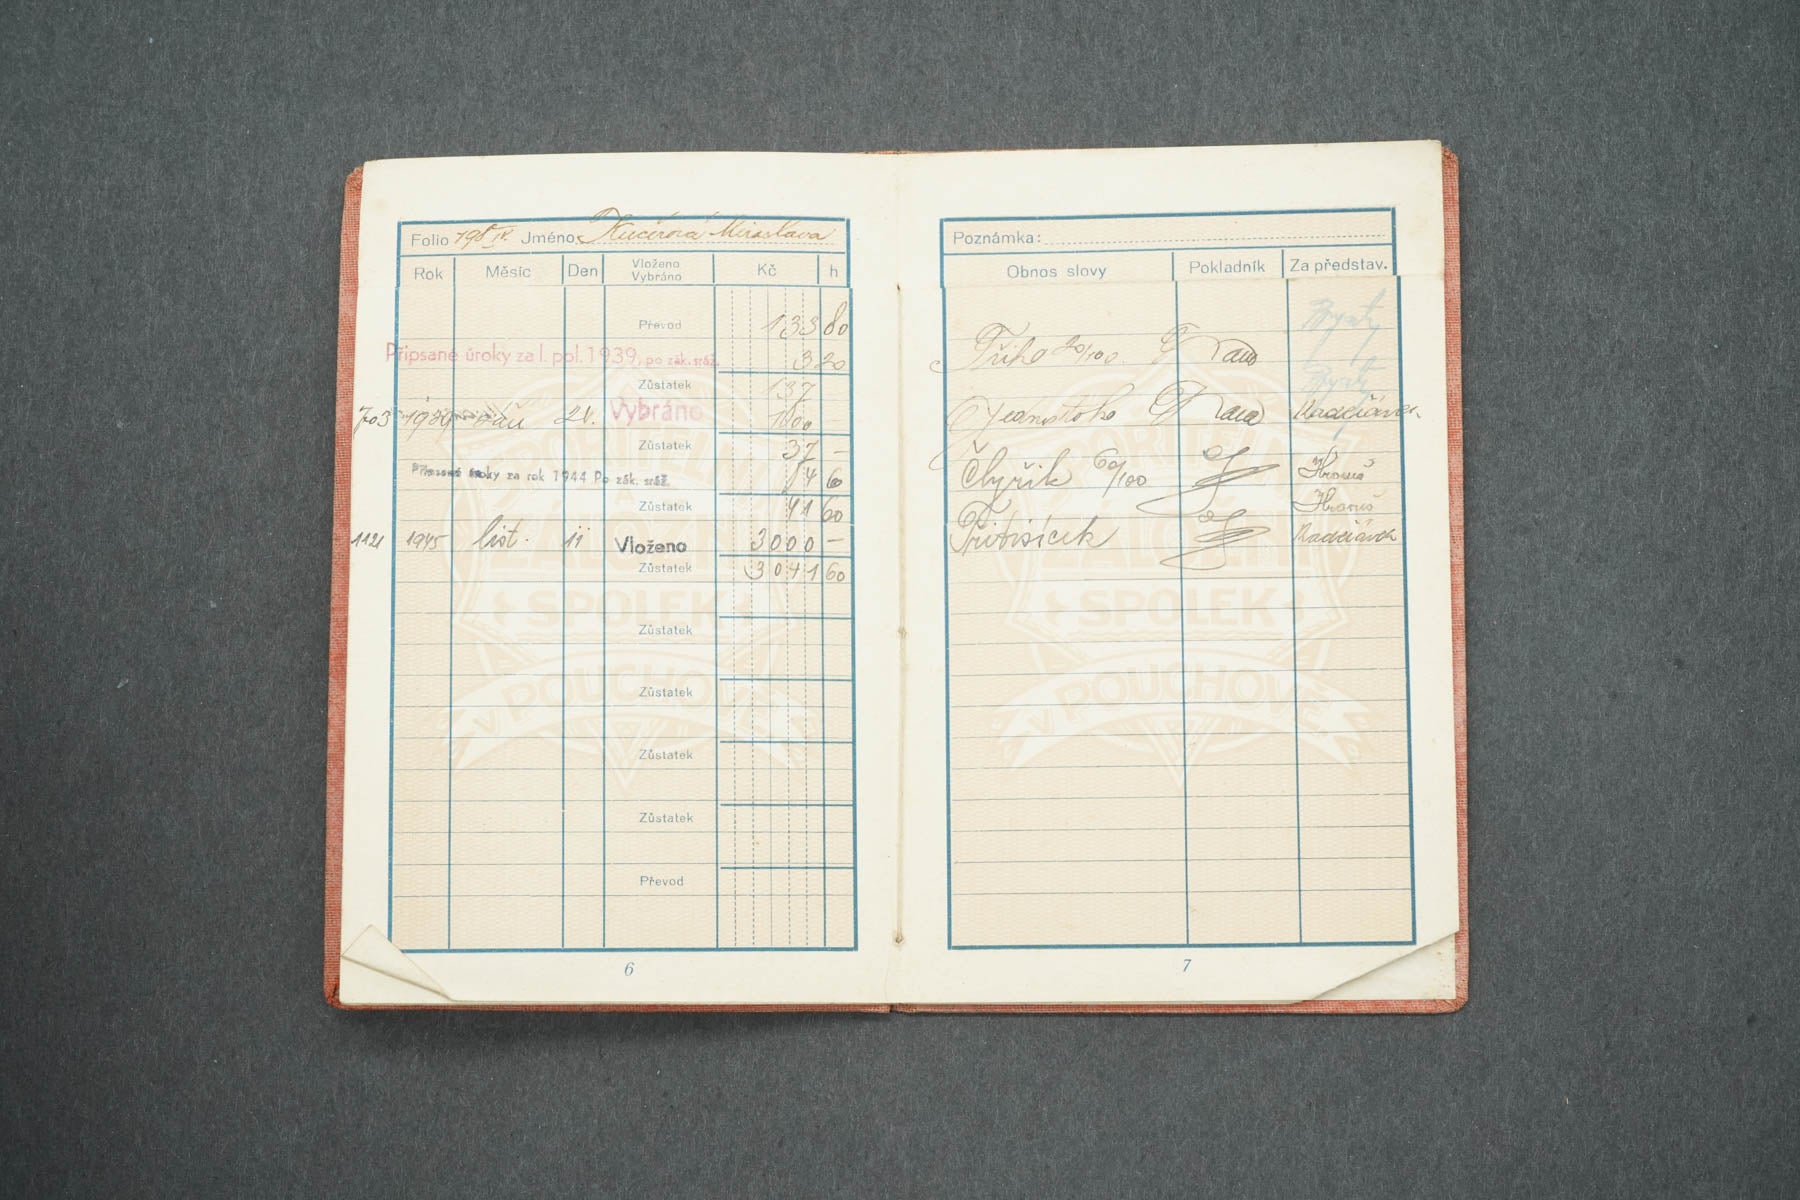 Folio 198/IV. Jméno Kučerová Miroslava
Rok Měsíc Den Vloženo Vybráno Kč h
Převod 133 80
Připsané úroky za I. pol. 1939, po zák. sráž. 3 20
Zůstatek 137 —
703 1939 září 21. Vybráno 100 —
Zůstatek 37 —
Připsané úroky za rok 1944 Po zák. sráž. 4 60
Zůstatek 41 60
1121 1945 list. 11 Vloženo 3000 —
Zůstatek 3041 60
Zůstatek
Zůstatek
Zůstatek
Zůstatek
Převod
6
SPOŘITELNÍ
ZÁLOŽNÍ
SPOLEK
V POUCHOVĚ
Poznámka:
Obnos slovy Pokladník Za představ.
Tři 20/100
Jednosto
Čtyři 60/100 Hronus
Hronus
Třitisíce
7
SPOŘITELNÍ
ZÁLOŽNÍ
SPOLEK
V POUCHOVĚ